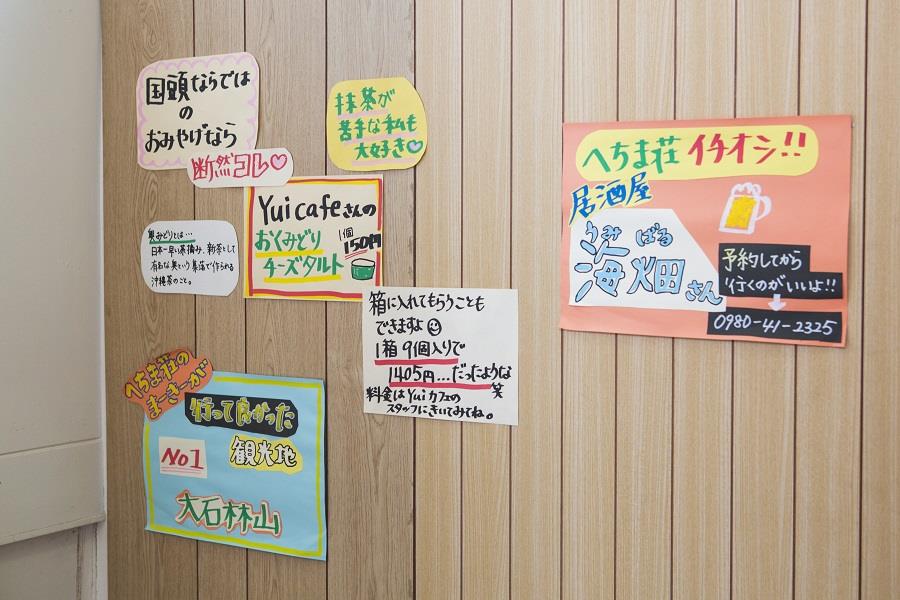 国頭ならでは
の
おみやげなら
断然コレ♡
抹茶が
苦手な私も
大好き♡
Yui cafeさんの
おくみどり
チーズタルト
1個
150円
奥みどりとは…
日本一早い茶摘み、新茶として
有名な奥という集落で作られる
沖縄茶のこと。
箱に入れてもらうことも
できますよ☺
1箱9個入りで
1405円…だったような
笑
料金はYuiカフェの
スタッフにきいてみてね。
へちま荘の
まーきーが
行って良かった
観光地
No1
大石林山
へちま荘 イチオシ!!
居酒屋
うみ ばる
海畑さん
予約してから
行くのがいいよ!!
0980-41-2325